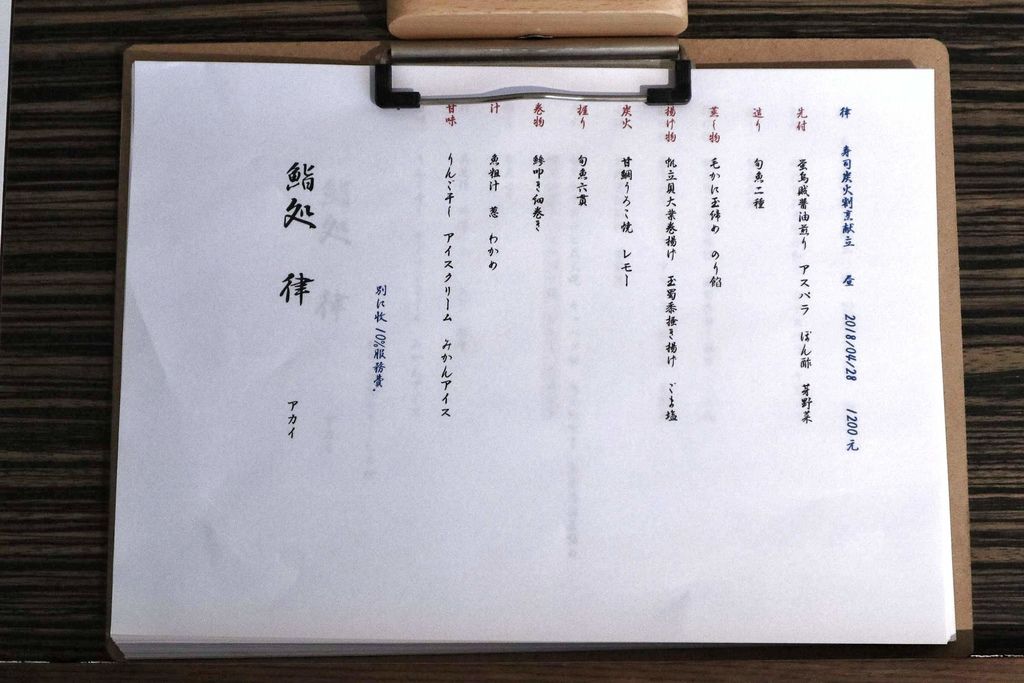 律 寿司炭火割烹献立 昼 2018/04/28 1200元
先付 蛍烏賊醤油煎り アスパラ ぽん酢 芽野菜
造り 旬魚二種
蒸し物 毛かに玉締め のり餡
揚げ物 帆立貝大葉巻揚げ 玉蜀黍掻き揚げ ごま塩
炭火 甘鯛うろこ焼 レモー
握り 旬魚六貫
巻物 鯵叩き細巻き
汁 魚粗汁 葱 わかめ
甘味 りんご干し アイスクリーム みかんアイス
別に收10%服務費.
鮨処 律 アカイ